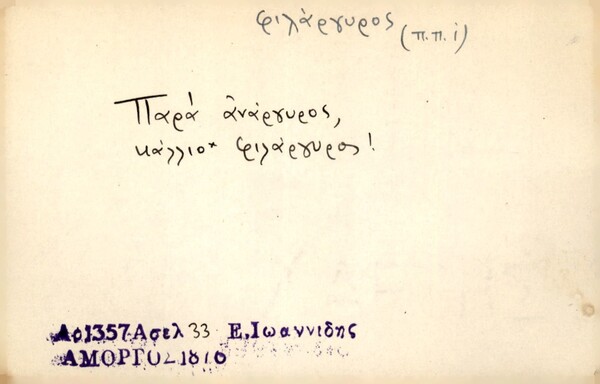 φιλάργυρος (π.π. ί)
Παρά ἀνάργυρος,
κάλλιο* φιλάργυρος!
Αρ1357Α σελ 33 Ε.Ιωαννίδης
ΑΜΟΡΓΟΣ 1876